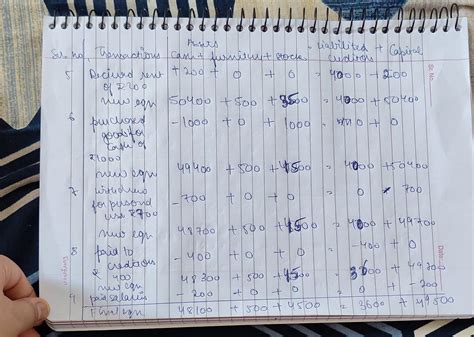 Assets = Liabilities + Capital
Sr. no. Transactions Cash + furniture + stock creditors
5 Received rent +200 + 0 + 0 = 0 + 200
of ₹200
new eqn 50400 + 500 + 3500 = 4000 + 50400
6 purchased -1000 + 0 + 1000 = 0 + 0
goods for
cash of
₹1000
new eqn 49400 + 500 + 4500 = 4000 + 50400
7 withdrew -700 + 0 + 0 = 0 - 700
for personal
use ₹700
new eqn 48700 + 500 + 4500 = 4000 + 49700
8 paid to -400 + 0 + 0 = -400 + 0
creditors
₹ 400
new eqn 48300 + 500 + 4500 = 3600 + 49700
9 paid salaries - 200 + 0 + 0 = 0 + -200
new eqn 48100 + 500 + 4500 = 3600 + 49500